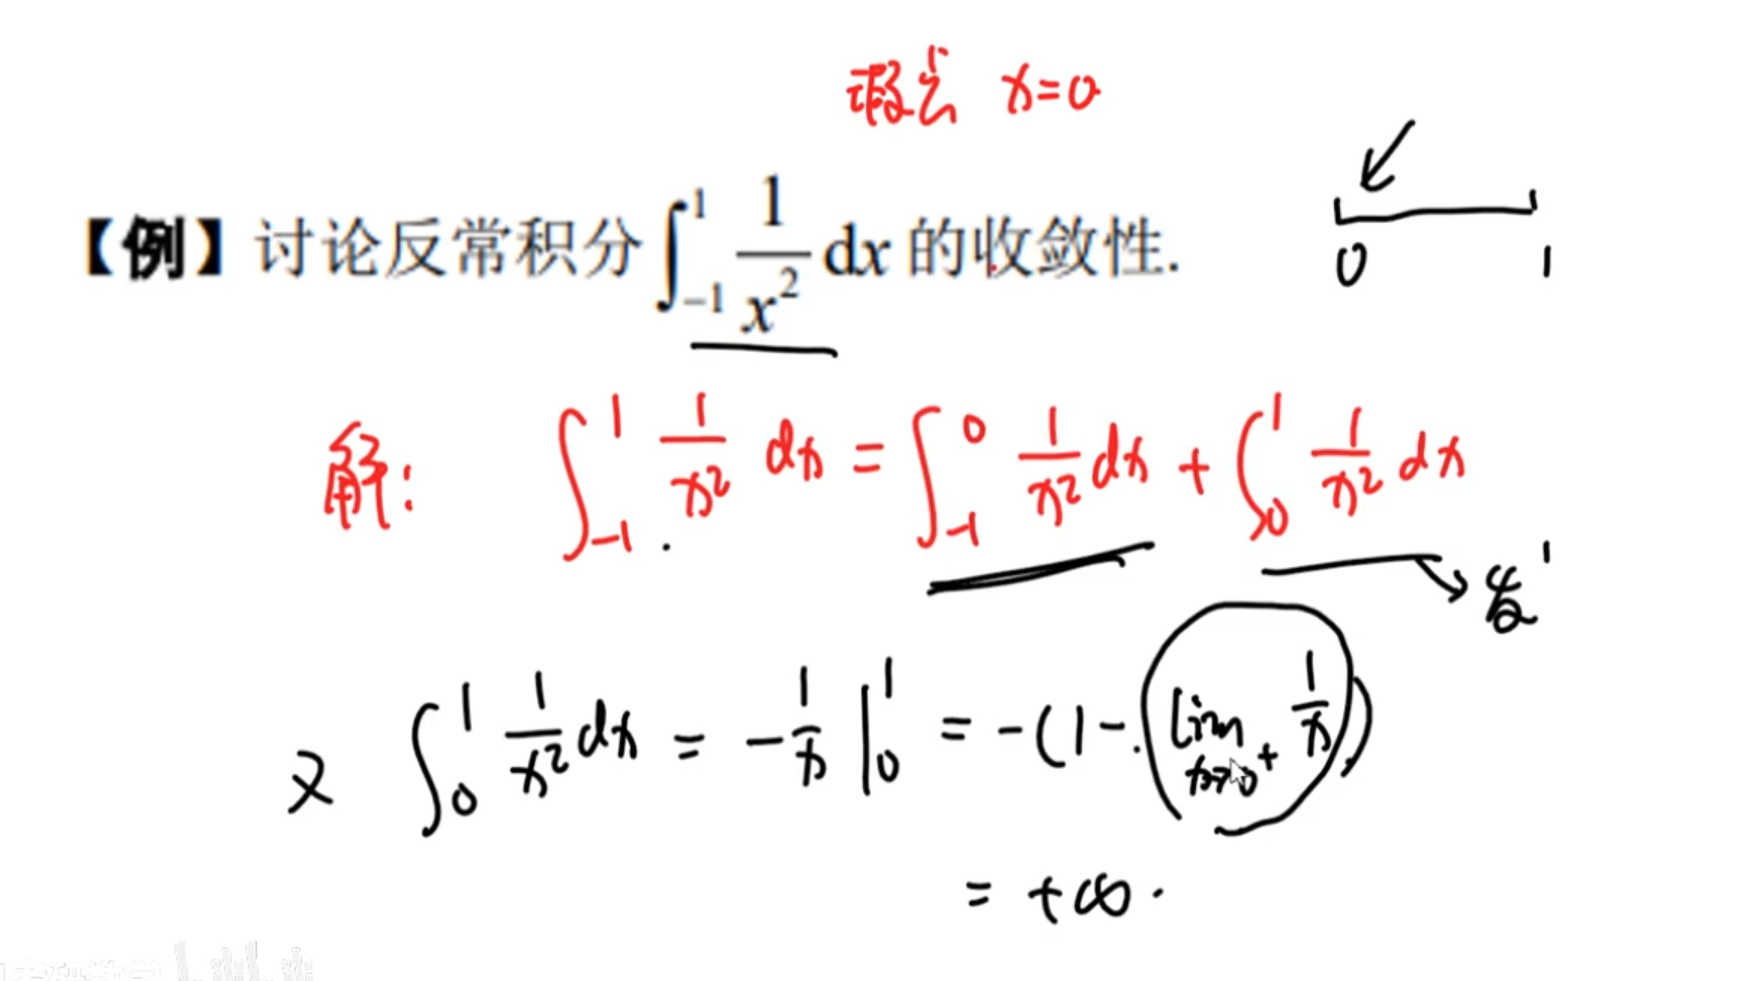 瑕点 x=0
【例】讨论反常积分∫_{-1}^{1} \frac{1}{x^2} dx 的收敛性.
0 1
解: ∫_{-1}^{1} \frac{1}{x^2} dx = ∫_{-1}^{0} \frac{1}{x^2} dx + ∫_{0}^{1} \frac{1}{x^2} dx
又 ∫_{0}^{1} \frac{1}{x^2} dx = -\frac{1}{x} |_{0}^{1} = -(1- lim_{x→0^+} \frac{1}{x})
= +∞.